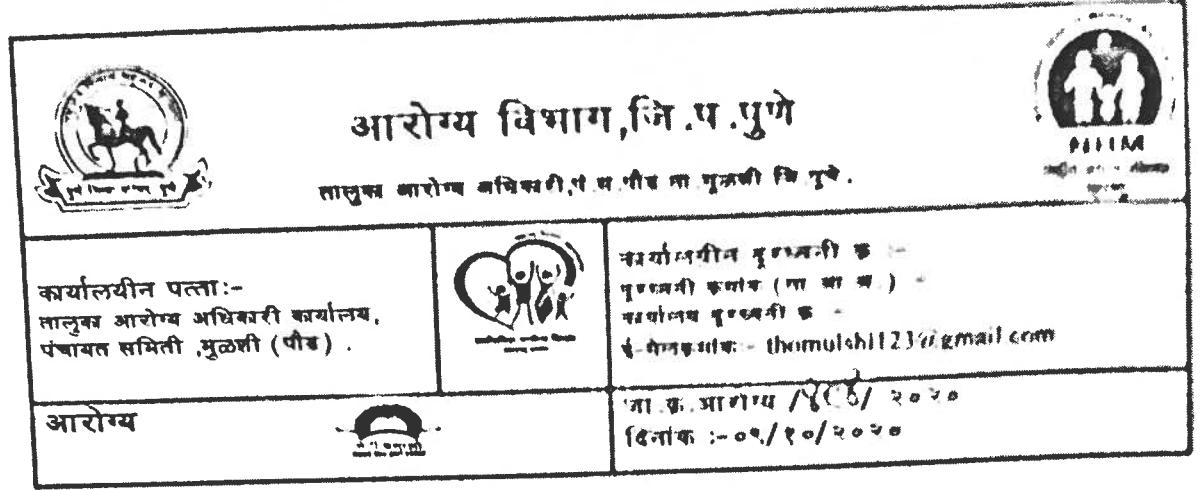 आरोग्य विभाग,जि.प.पुणे
तालुका आरोग्य अधिकारी,पं स पौड ता मुळशी जि पुणे.
NHM
कार्यालयीन पत्ता:-
तालुका आरोग्य अधिकारी कार्यालय,
पंचायत समिती ,मुळशी (पौड) .
कार्यालयीन दुरध्वनी क्र :-
दुरध्वनी क्रमांक (ता आ अ.) -
कार्यालय दुरध्वनी क्र -
ई-मेल क्रमांक:- thomulshi123@gmail.com
आरोग्य
जा.क्र.आरोग्य / / २०२०
दिनांक :-०९/१०/२०२०